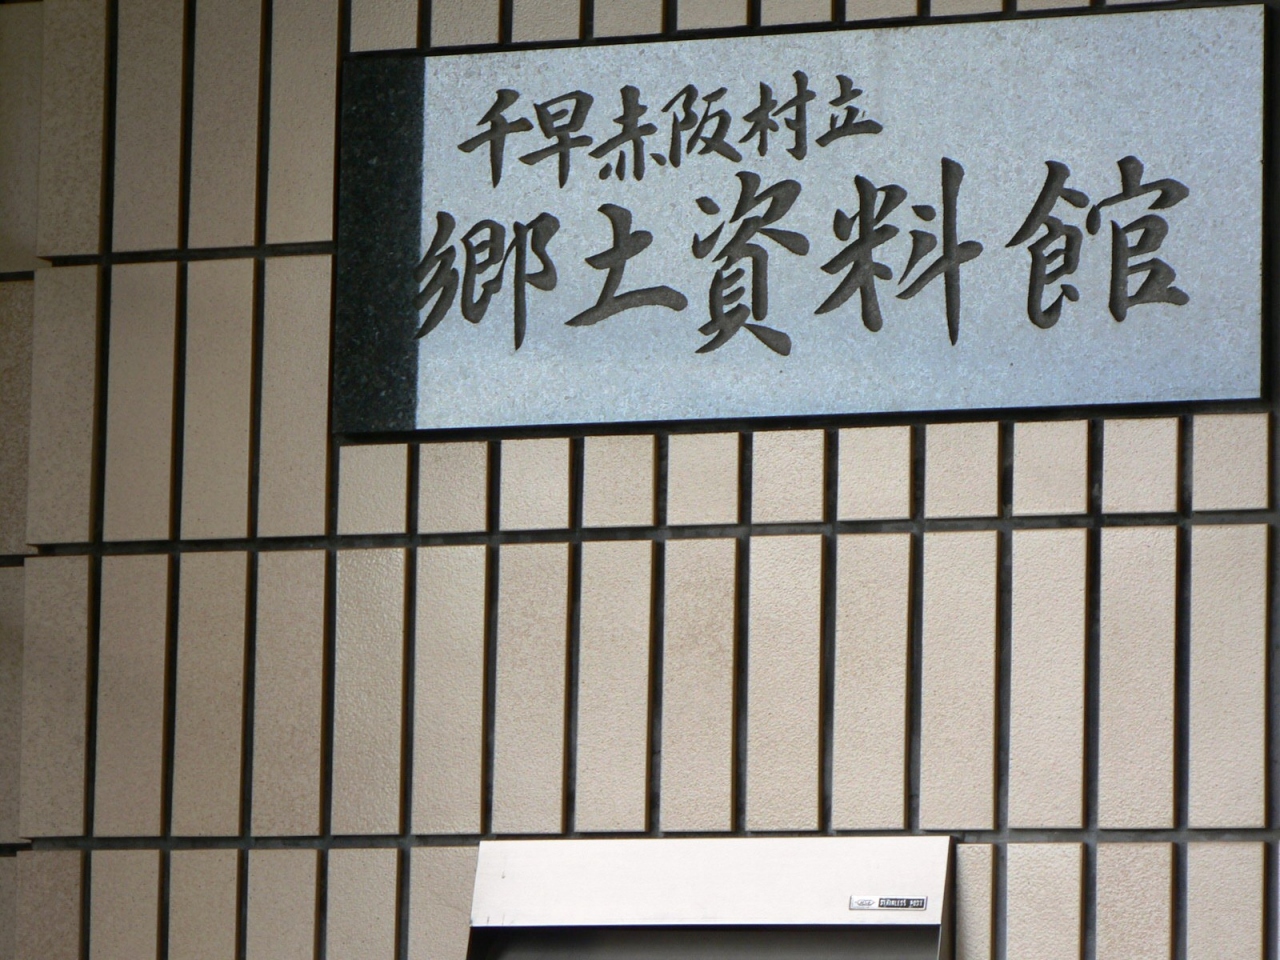 千早赤阪村立
郷土資料館
STAINLESS POST